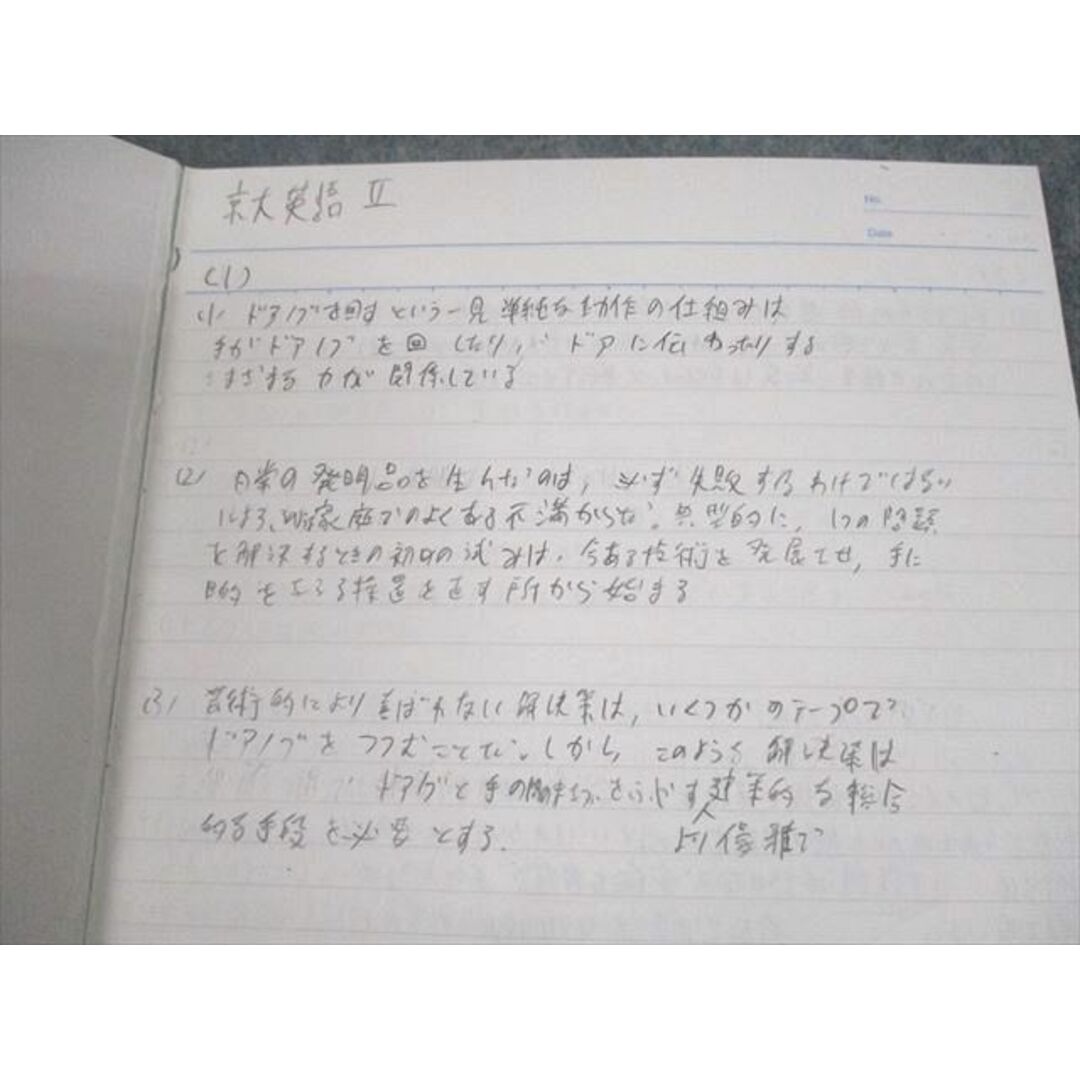 京大英語 II
No.
Date
(1)
(1) ドアノブを回すという一見単純な動作の仕組みは
手がドアノブを回したり、ドアに伝わったりする
さまざまな力が関係している
(2) 日常の発明品を生んだのは、必ず失敗するわけではない
にしろ、家庭でのよくある不満からだ。典型的に、1つの問題
を解決するときの初めの試みは、今ある技術を発展させ、手に
目的を 措置を直す所から始まる
(3) 芸術的により 解決策は、いくつかのテープで
ドアノブをつつむことだ。しかし、このような解決策は
ドアノブと手の間 す 的な統合
的な手段を必要とする。 より優雅で